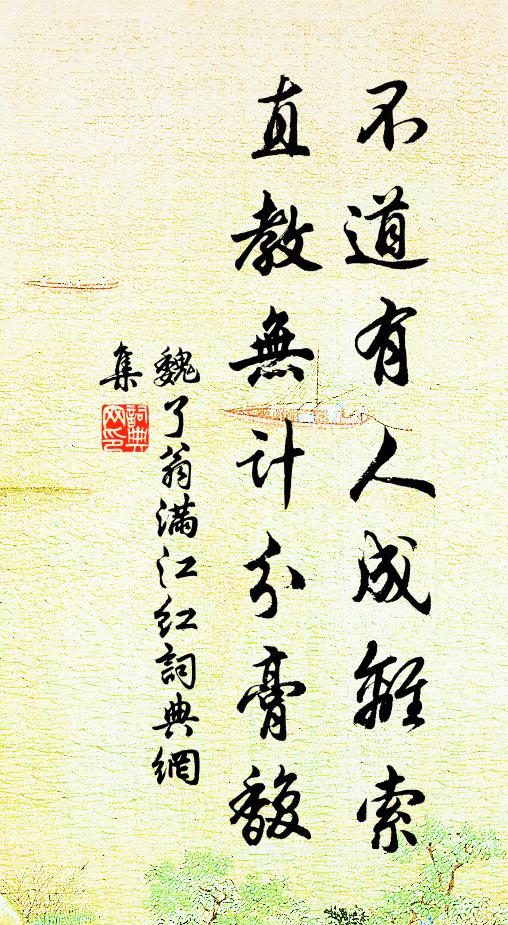 不道有人成離索
直教無計分膏馥
魏了翁滿江紅詞典網
集
詞典
网印